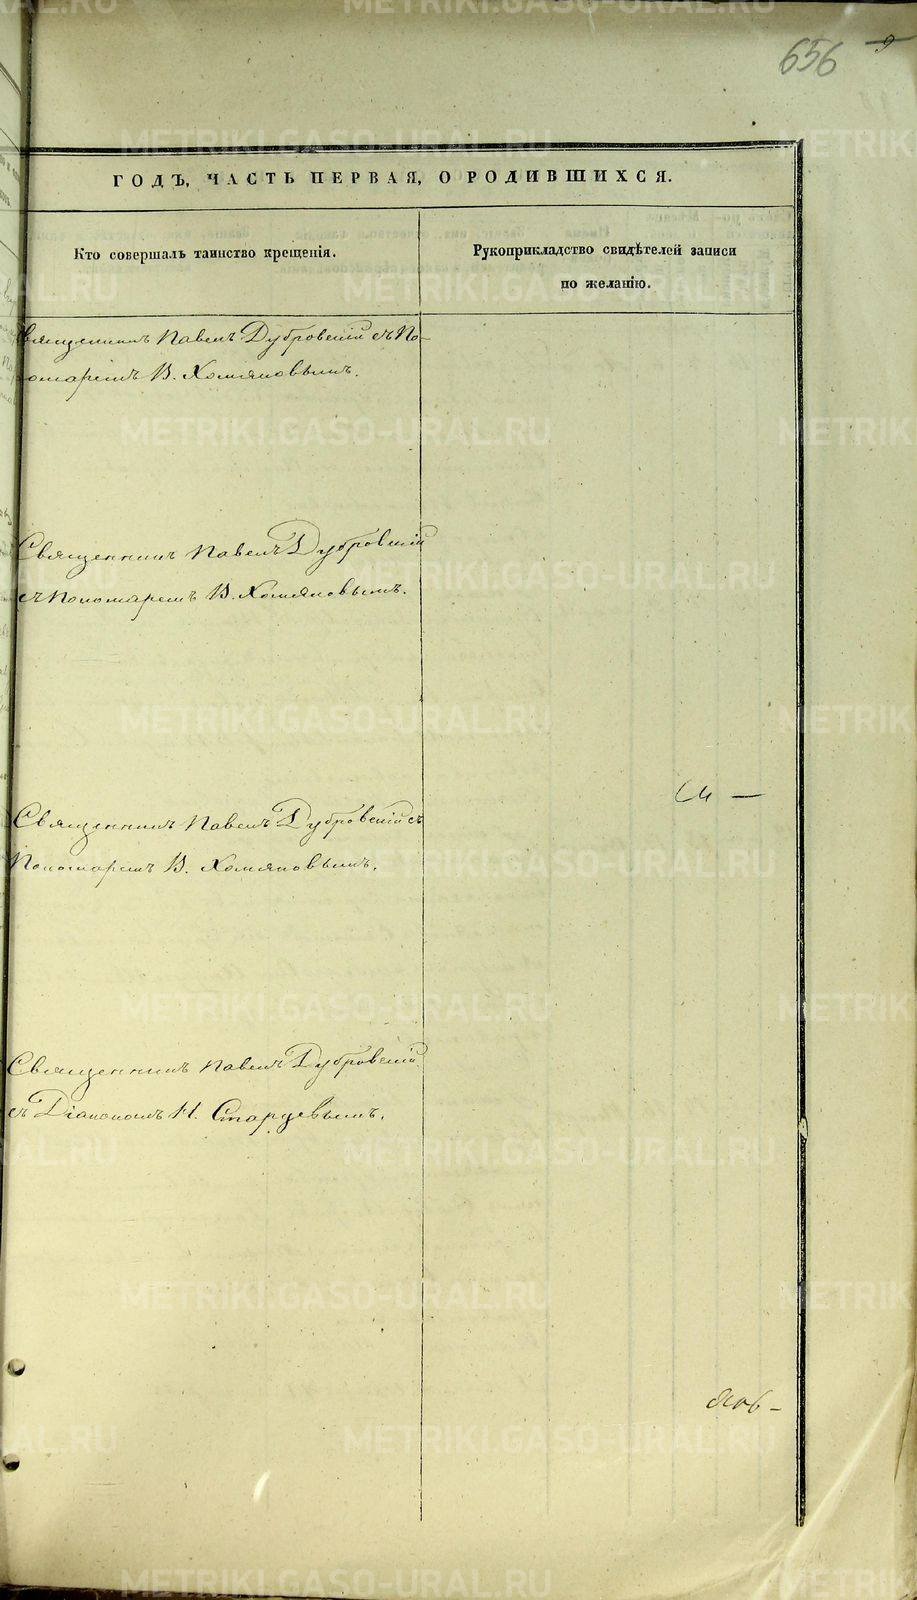 656
ГОДЪ, ЧАСТЬ ПЕРВАЯ, О РОДИВШИХСЯ.
Кто совершалъ таинство крещенія.
Рукоприкладство свидѣтелей записи
по желанію.
Священникъ Павелъ Дубровскій съ По-
номаремъ В. Хомяковымъ.
Священникъ Павелъ Дубровскій
съ Пономаремъ В. Хомяковымъ.
Священникъ Павелъ Дубровскій съ
Пономаремъ В. Хомяковымъ.
Священникъ Павелъ Дубровскій
съ Діакономъ Н. Старцевымъ.
METRIKI.GASO-URAL.RU